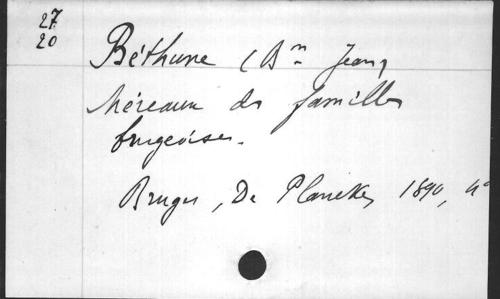 27
20
Béthune (Bon Jean)
Méreaux de familles
brugeoises.
Bruges, De Plancke, 1890, 4°